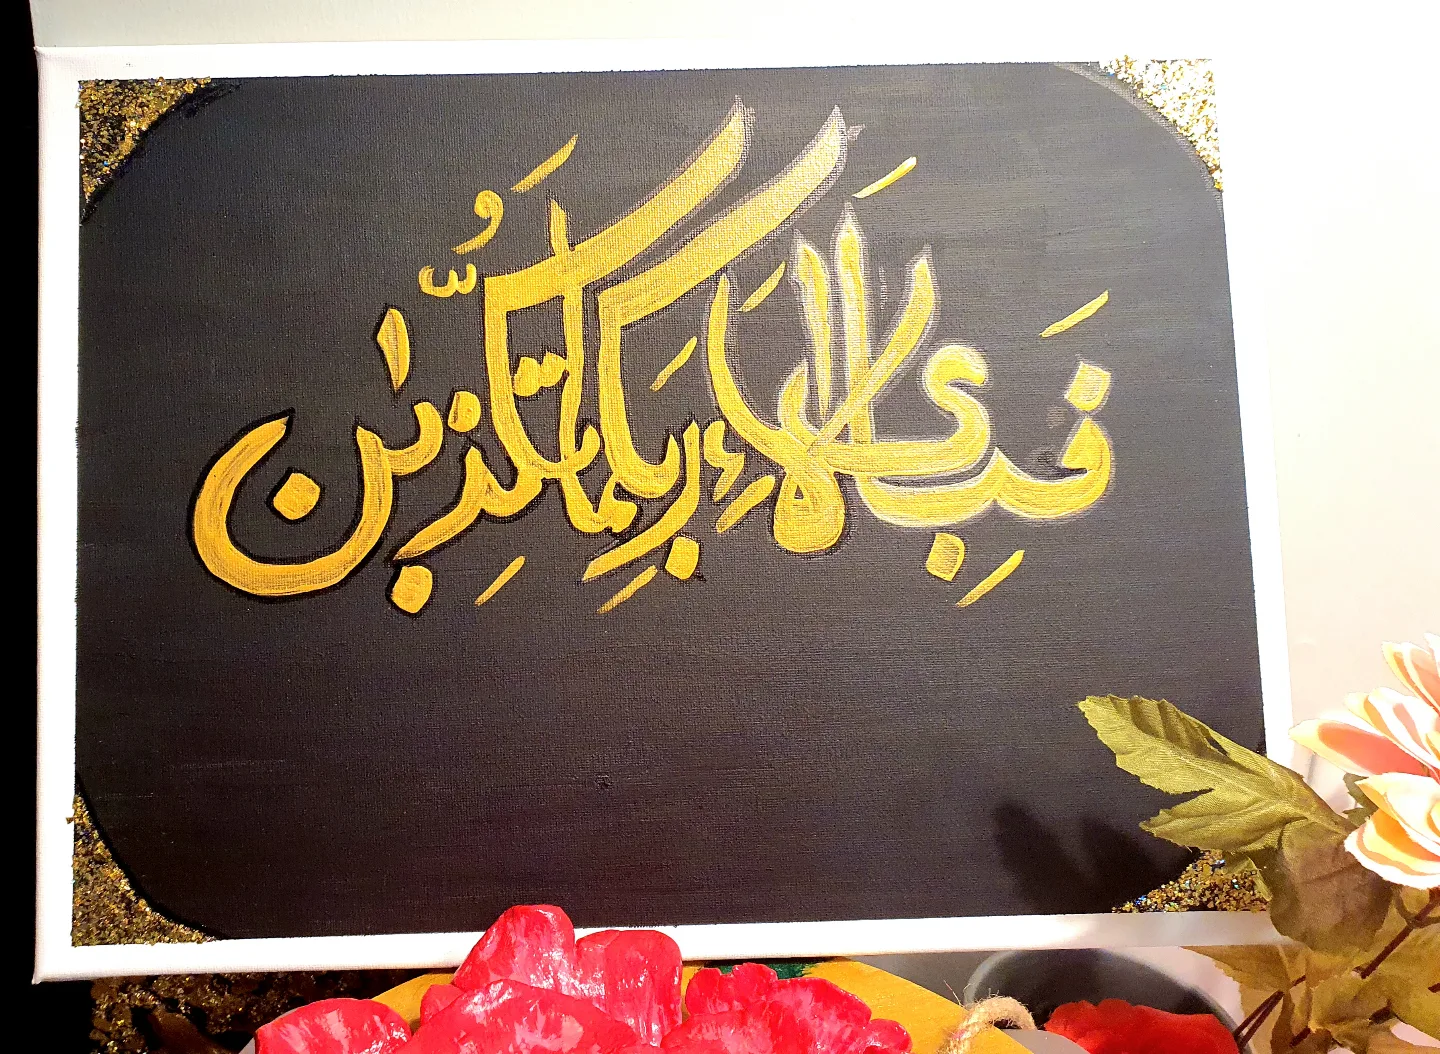 فَبِأَىِّ اٰلَاۤءِ رَبِّكُمَا تُكَذِّبٰنِ